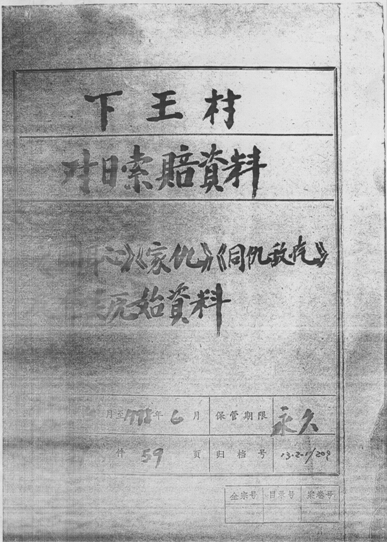 下王村
对日索赔資料
》《家仇》《同仇敌忾》
原始資料
月至1998年6月 保管期限 永久
件 59 頁 归档号 13-2-1/209
全宗号 目录号 案卷号